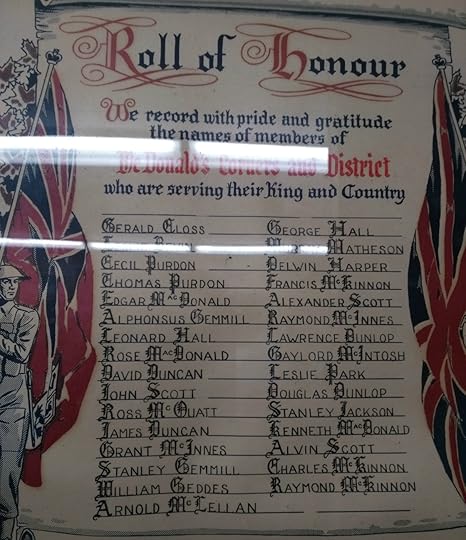 Roll of Honour
We record with pride and gratitude
the names of members of
McDonald's Corners and District
who are serving their King and Country
Gerald Closs George Hall
Matheson
Cecil Purdon Delwin Harper
Thomas Purdon Francis McKinnon
Edgar MacDonald Alexander Scott
Alphonsus Gemmill Raymond McInnes
Leonard Hall Lawrence Dunlop
Rose MacDonald Gaylord McIntosh
David Duncan Leslie Park
John Scott Douglas Dunlop
Ross McQuatt Stanley Jackson
James Duncan Kenneth MacDonald
Grant McInnes Alvin Scott
Stanley Gemmill Charles McKinnon
William Geddes Raymond McKinnon
Arnold McLellan